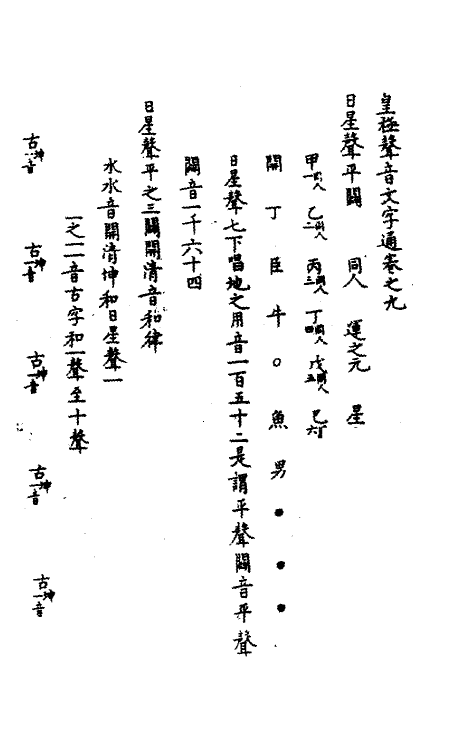 皇極聲音文字通卷之九
日星聲平闢 同人 運之元 星
甲一同人 乙二同人 丙三同人 丁四同人 戊五同人 己六
開丁臣牛○魚男●●●
日星聲七下唱地之用音一百五十二是謂平聲闢音平聲
闢音一千六十四
日星聲平之三闢開清音和律
水水音開清坤和日星聲一
一之一音古字和一聲至十聲
古坤一音 古坤一音 古坤一音 古坤一音 古坤一音